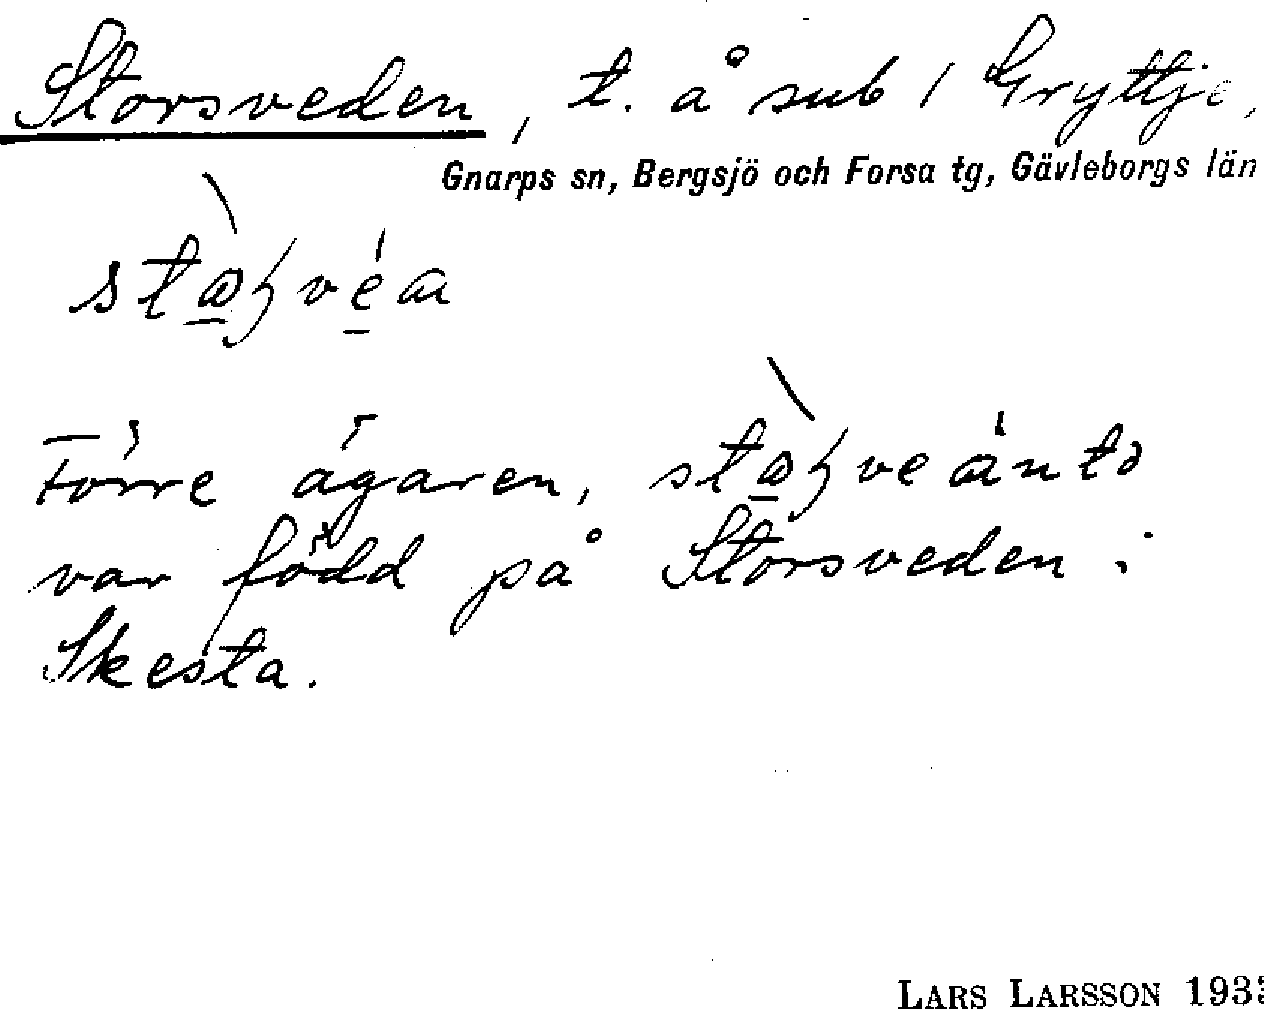 Storsveden, t. å sub 1 Gryttje,
Gnarps sn, Bergsjö och Forsa tg, Gävleborgs län
Förre ägaren,
var född på Storsveden i
Skesta.
LARS LARSSON 193